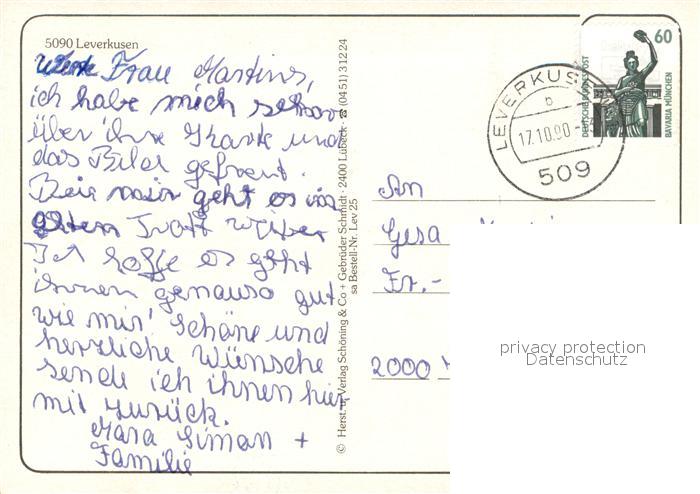 5090 Leverkusen
Werte Frau Martins,
ich habe mich sehr
über ihre Karte und
das Bild gefreut.
Bei mir geht es im
guten Trott weiter
Ich hoffe es geht
ihnen genauso gut
wie mir! Schöne und
herzliche Wünsche
sende ich ihnen hier
mit zurück.
Mara Siman +
Familie
© Herst. u. Verlag Schöning & Co + Gebrüder Schmidt · 2400 Lübeck · ☎ (04 51) 3 12 24
sa Bestell-Nr. Lev 25
LEVERKUSEN
b
17.10.90
509
60
DEUTSCHE BUNDESPOST
BAVARIA MÜNCHEN
An
Gesa
Fr.-
2000
privacy protection
Datenschutz